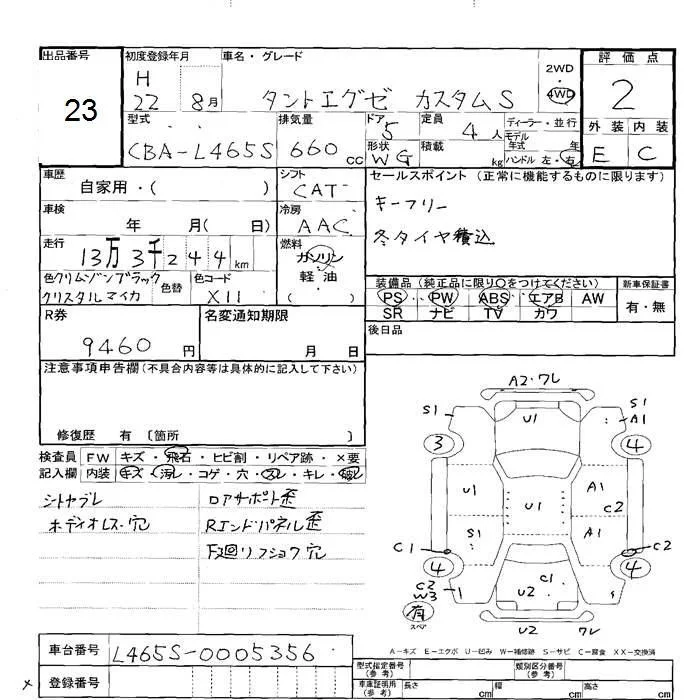 出品番号
23
初度登録年月
H
22 8月
車名・グレード
タントエグゼ カスタムS
2WD
・
4WD
評価点
2
外装 内装
E C
型式
CBA-L465S
排気量
660 cc
ドア 5
形状 WG
定員 4人
積載 kg
ディーラー・並行
モデル
年式 年
ハンドル 左・右
車歴
自家用・( )
シフト
CAT
セールスポイント (正常に機能するものに限ります)
キーフリー
冬タイヤ積込
車検
年 月( 日)
冷房
AAC
走行
13万3千244km
燃料
ガソリン
軽・油
( )
色クリムゾンブラック
クリスタルマイカ
色替
色コード
X11
装備品 (純正品に限り○をつけてください)
PS PW ABS エアB AW
SR ナビ TV カワ
新車保証書
有・無
R券
9460円
名変通知期限
月 日
後日品
注意事項申告欄(不具合内容等は具体的に記入して下さい)
修復歴 有 〔箇所 〕
検査員 FW キズ・飛石・ヒビ割・リペア跡・×要
記入欄 内装 キズ・汚レ・コゲ・穴・スレ・キレ・破レ
シトヤブレ
ホディオレス・穴
ロアサポート歪
Rエンドパネル歪
下廻リフショク穴
A2・ワレ
S1
U1
S1
A1
3
4
U1
A1
U1
C2
S1
A1
C1
C2
4
4
C2
W3
1
C1
U2
S
有
スペア
U2 ワレ
A-キズ E-エクボ U-凹み W-補修跡 S-サビ C-腐食 XX-交換済
車台番号
L465S-0005356
登録番号
型式指定番号
(参考)
類別区分番号
(参考)
車庫証明用
(参考)
長さ cm
幅 cm
高さ cm